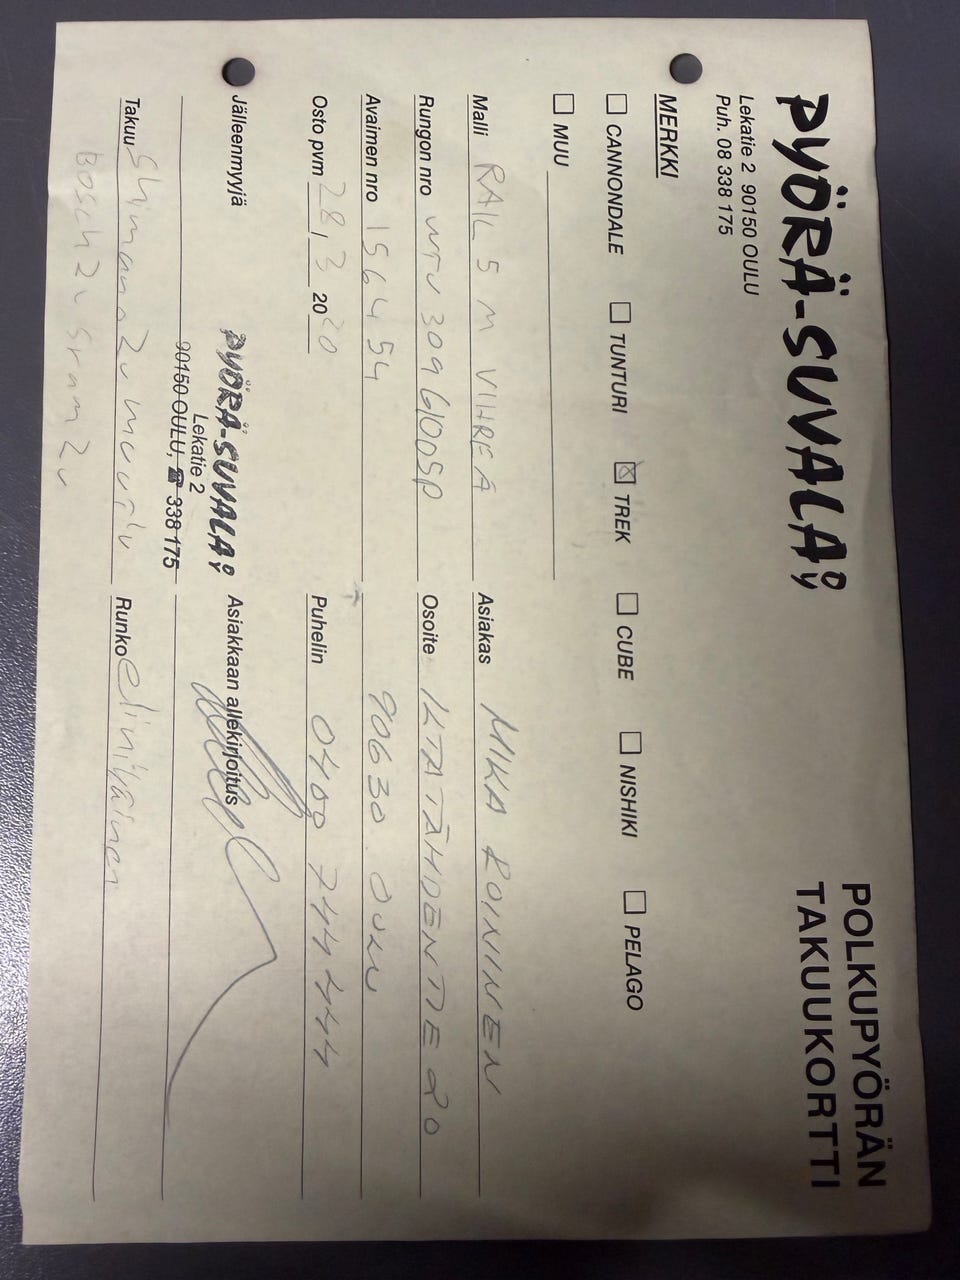 PYÖRÄ-SUVALA Oy
Lekatie 2 90150 OULU
Puh. 08 338 175
POLKUPYÖRÄN
TAKUUKORTTI
MERKKI
☐ CANNONDALE ☐ TUNTURI ☒ TREK ☐ CUBE ☐ NISHIKI ☐ PELAGO
☐ MUU
Malli RAIL 5 M VIHREÄ
Asiakas MIKA ROININEN
Rungon nro WTU 309 G1005P
Osoite IKTATÄHDENTIE 20
Avaimen nro 156454
90630 OULU
Osto pvm 28, 3 2020
Puhelin 0400 744 444
Jälleenmyyjä
PYÖRÄ-SUVALA Oy
Lekatie 2
90150 OULU, ☎ 338 175
Asiakkaan allekirjoitus
Takuu Shimano 2v muut 1v
Runko elinikäinen
Bosch 2v Sram 2v